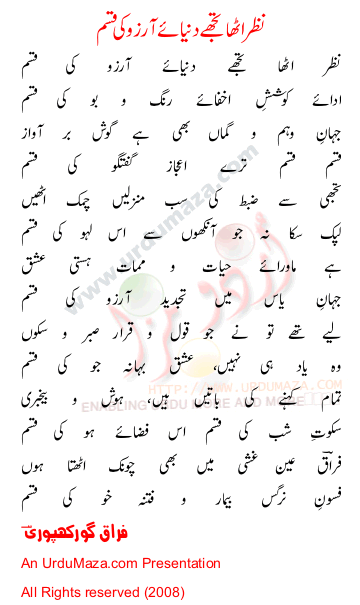 نظر اٹھا تجھے دنیائے آرزو کی قسم
نظر اٹھا تجھے دنیائے آرزو کی قسم
ادائے کوششِ اخفائے رنگ و بو کی قسم
جہانِ وہم و گماں بھی ہے گوش بر آواز
قسم قسم ترے اعجازِ گفتگو کی قسم
تجھی سے ضبط کی سب منزلیں چمک اٹھیں
لپک سکا نہ جو آنکھوں سے اس لہو کی قسم
ہے ماورائے حیات و ممات ہستی عشق
جہانِ یاس میں تجدید آرزو کی قسم
لیے تھے تو نے جو قول و قرار صبر و سکوں
وہ یاد ہی نہیں، عشق بہانہ جو کی قسم
تمام کہنے کی باتیں ہیں، ہوش و بیخبری
سکوتِ شب کی قسم اس فضائے ہو کی قسم
فراقؔ عین غشی میں بھی چونک اٹھتا ہوں
فسونِ نرگسِ بیمار و فتنہ خو کی قسم
فراق گورکھپوری
An UrduMaza.com Presentation
All Rights reserved (2008)
www.urdumaza.com
اردو مزا
HTTP://WWW.URDUMAZA.COM
ENABLING URDU MORE AND MORE